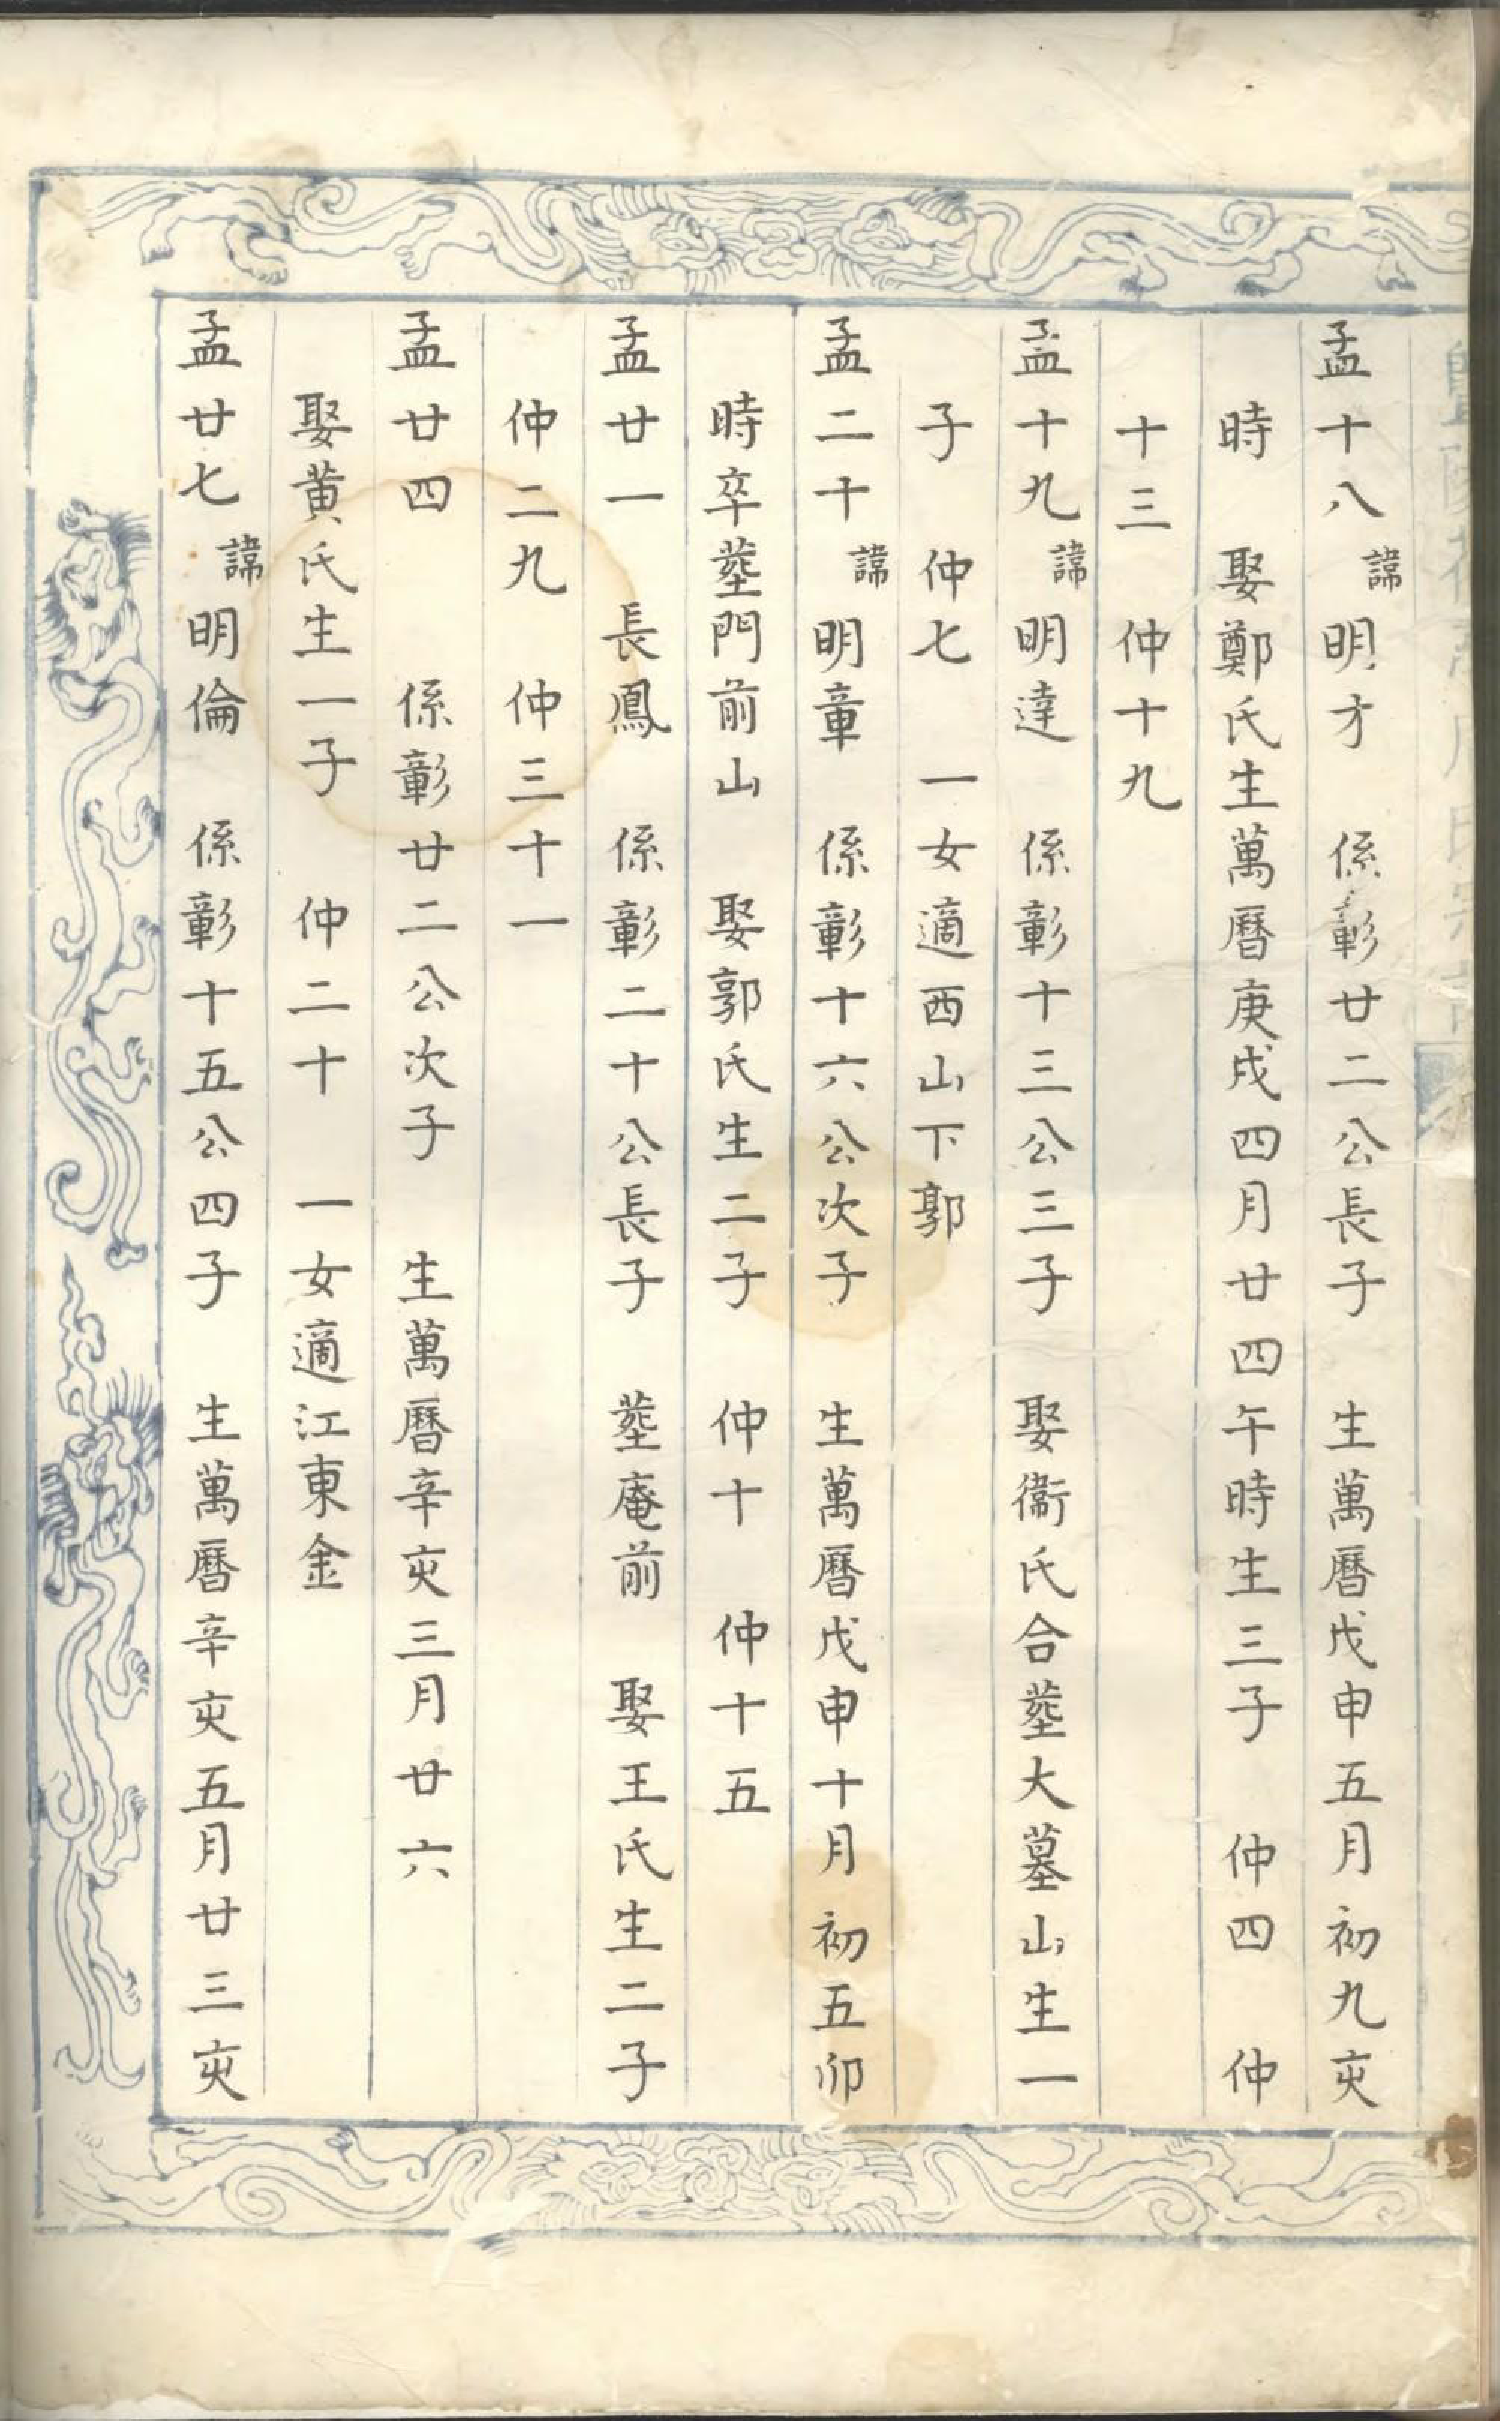 孟十八諱明才　係彰廿二公長子　生萬曆戊申五月初九亥
時　娶鄭氏生萬曆庚戌四月廿四午時生三子　仲四　仲
十三　仲十九
孟十九諱明達　係彰十三公三子　娶衞氏合塟大墓山生一
子　仲七　一女適西山下郭
孟二十諱明章　係彰十六公次子　生萬曆戊申十月初五卯
時卒塟門前山　娶郭氏生二子　仲十　仲十五
孟廿一　長鳳　係彰二十公長子　塟庵前　娶王氏生二子
仲二九　仲三十一
孟廿四　係彰廿二公次子　生萬曆辛亥三月廿六
娶黄氏生一子　仲二十　一女適江東金
孟廿七諱明倫　係彰十五公四子　生萬曆辛亥五月廿三亥